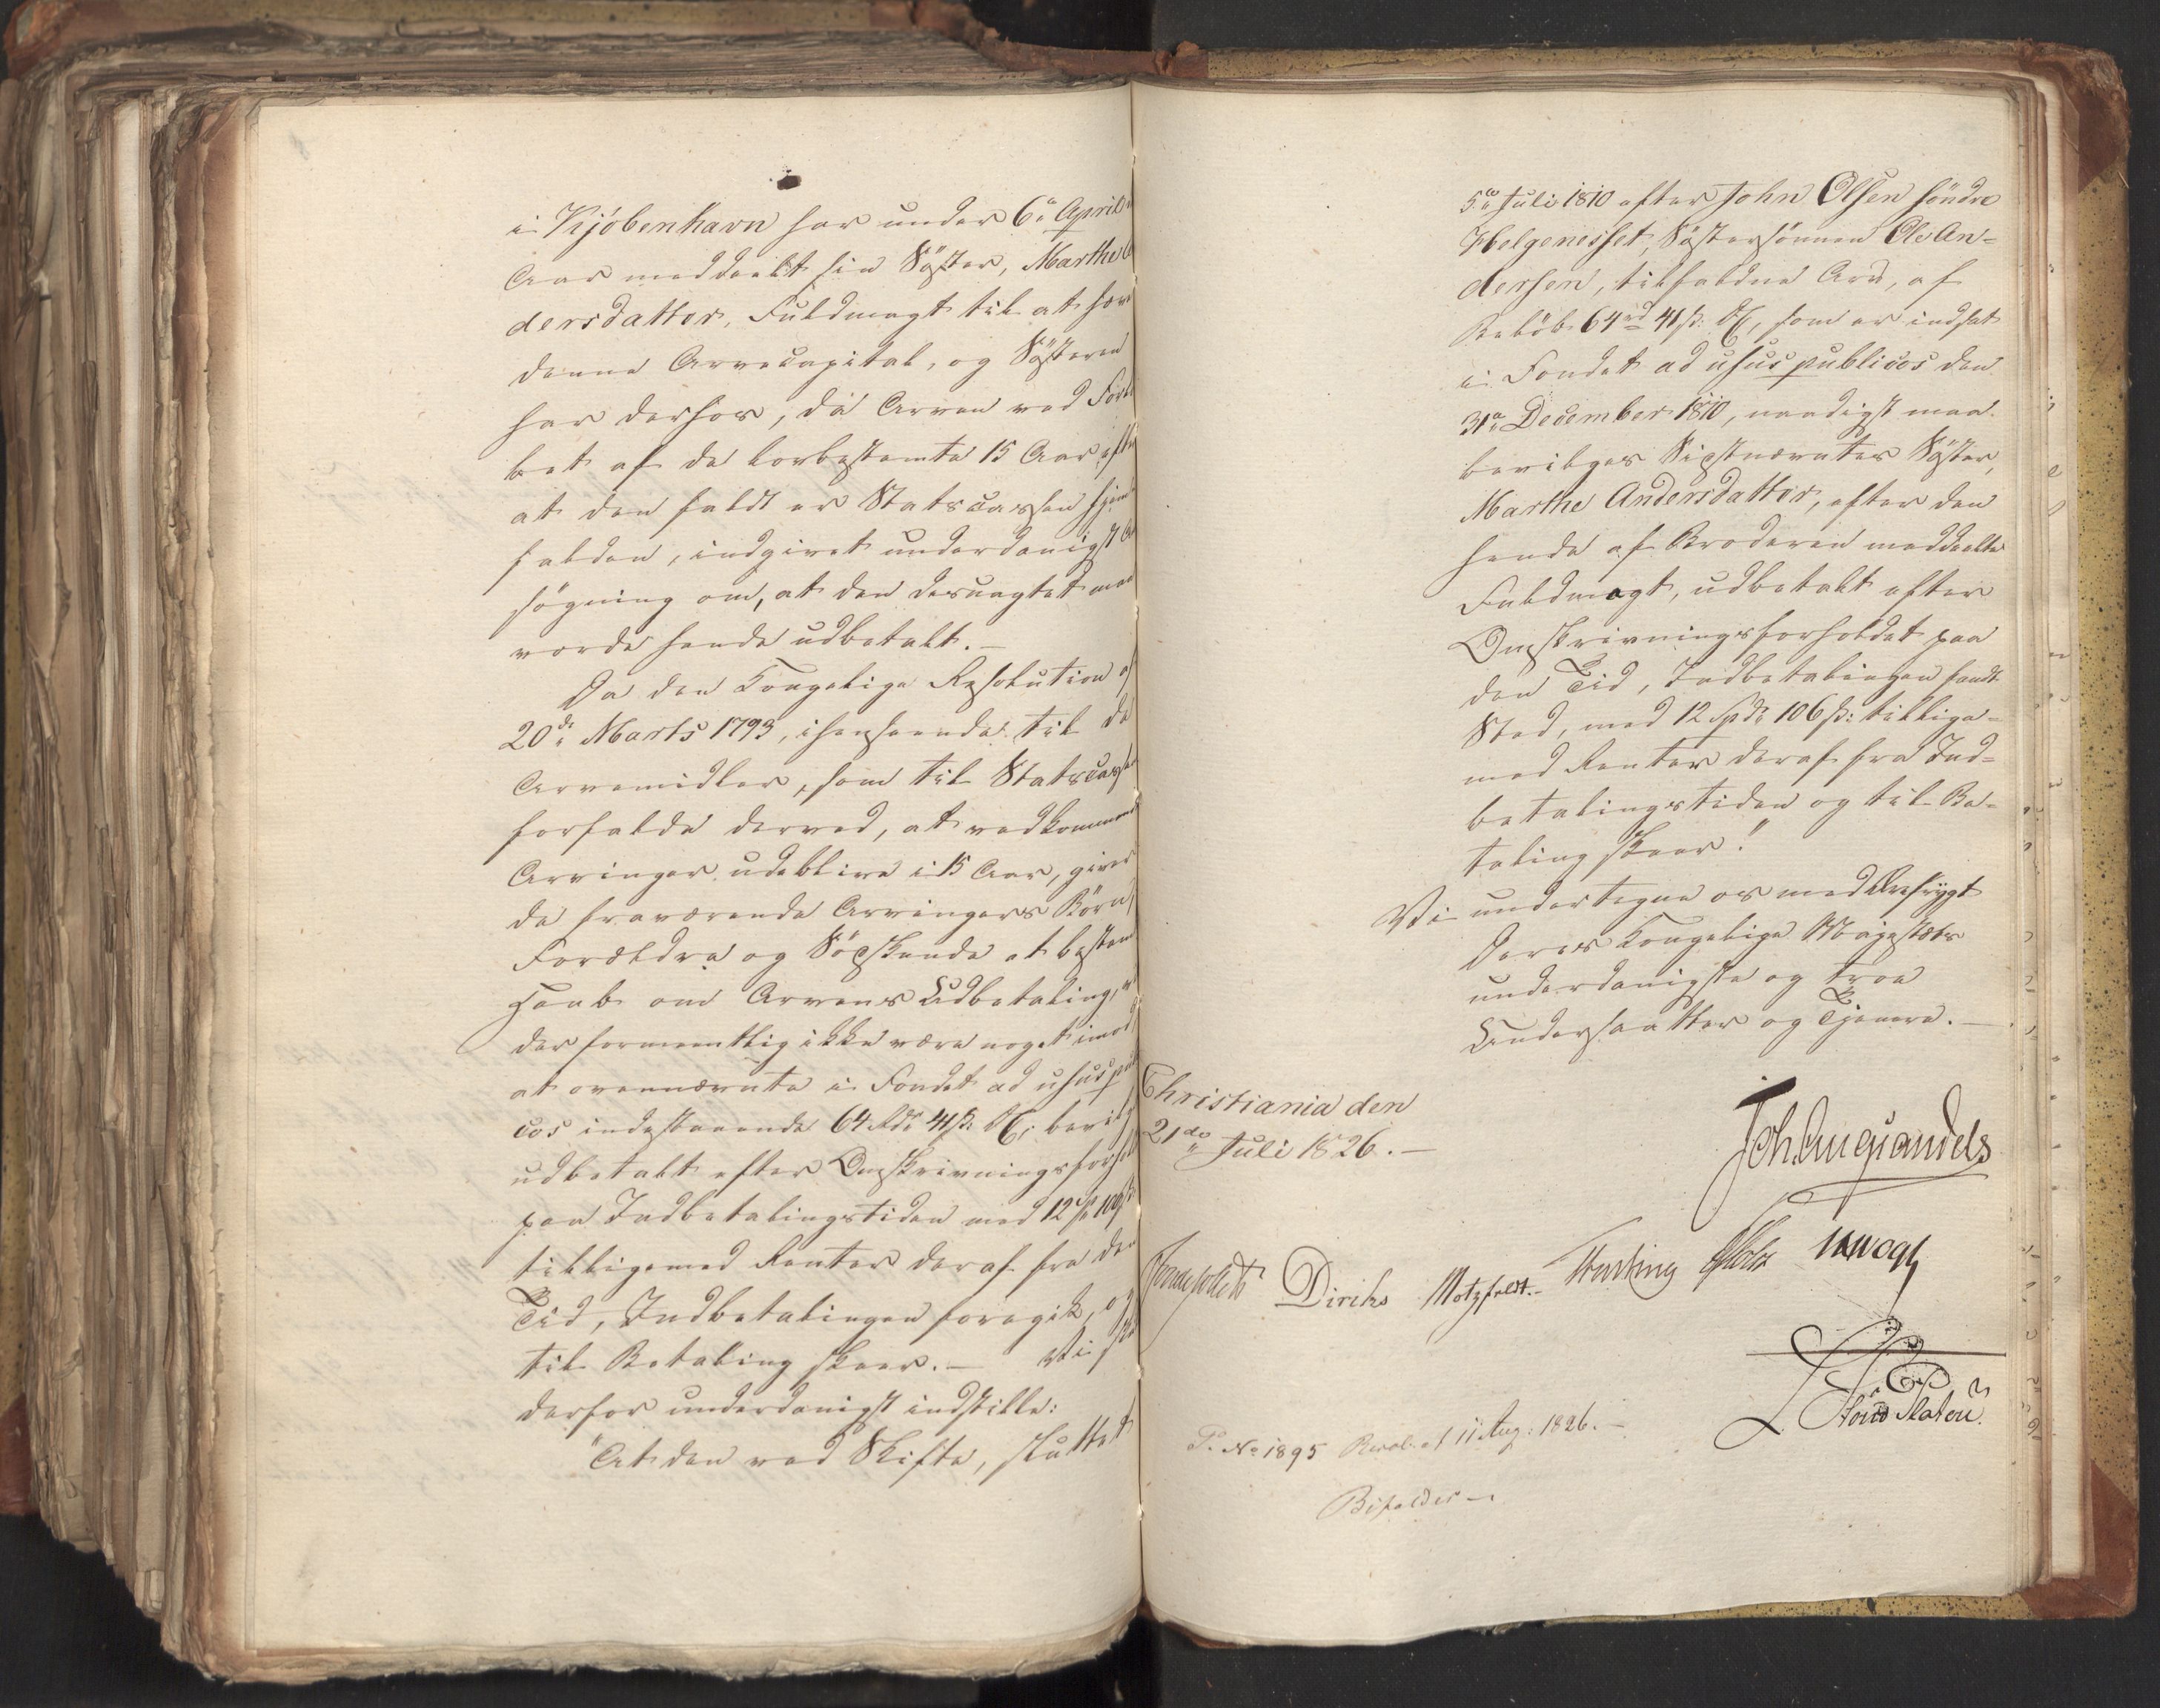 i Kjöbenhavn har under 6te April
Aar meddeelt sin Söster, Marthe
dersdatter, Fuldmagt til at hæve
denne Arvecapital, og Sösteren
har derfor, da Arven ved Forlö
bet af de lovbestemte 15 Aar efter
at den faldt er Statscassen hjem
falden, indgivet underdanigst
søgning om, at den desuagtet maa
vorde hende udbetalt.–
Da den Kongelige Resolution af
20de Marts 1793, i henseende til de
Arvemidler, som til Statscassen
forfalde derved, at vedkommende
Arvinger udeblive i 15 Aar, giver
de fraværende Arvingers Börn,
Forældre og Söskende et bestemt
Haab om Arvens Udbetaling,
der formeentlig ikke være noget imod,
at ovennævnte i Fondet ad usus pu
cos indestaaende 64 Rdr 41 ß:
udbetalt efter Omskrivningsforhol
paa Indbetalingstiden med 12 Sp 106 ß:
tilligemed Renter deraf fra den
Tid, Indbetalingen foregik, og
til Betaling skeer.– Vi
derfor underdanigst indstille:
"At den ved Skifte, sluttet
5te Juli 1810 efter John Olsen söndre
Helgenesset, Söstersönnen Ole An=
dersen, tilfaldne Arv, af
Belöb 64 rd 41 ß:, som er indsat
i Fondet ad usus publicos den
31te December 1810, naadigst maa
bevilges Sidstnævntes Söster,
Marthe Andersdatter, efter den
hende af Broderen meddeelte
Fuldmagt, udbetalt efter
Omskrivningsforholdet paa
den Tid, Indbetalingen fandt
Sted, med 12 Spd 106 ß: tillige=
med Renter deraf fra Ind=
betalingstiden og til Be=
taling skeer."
Vi undertegne os med Ærefrygt
Deres Kongelige Majestæts
underdanigste og troe
Undersaatter og Tjenere.–
Christiania den
21de Juli 1826.–
Joh. Aug Sandels
Diriks Motzfeldt.–
P. No 1895 Resol. af 11 Aug: 1826.–
Bifaldes–